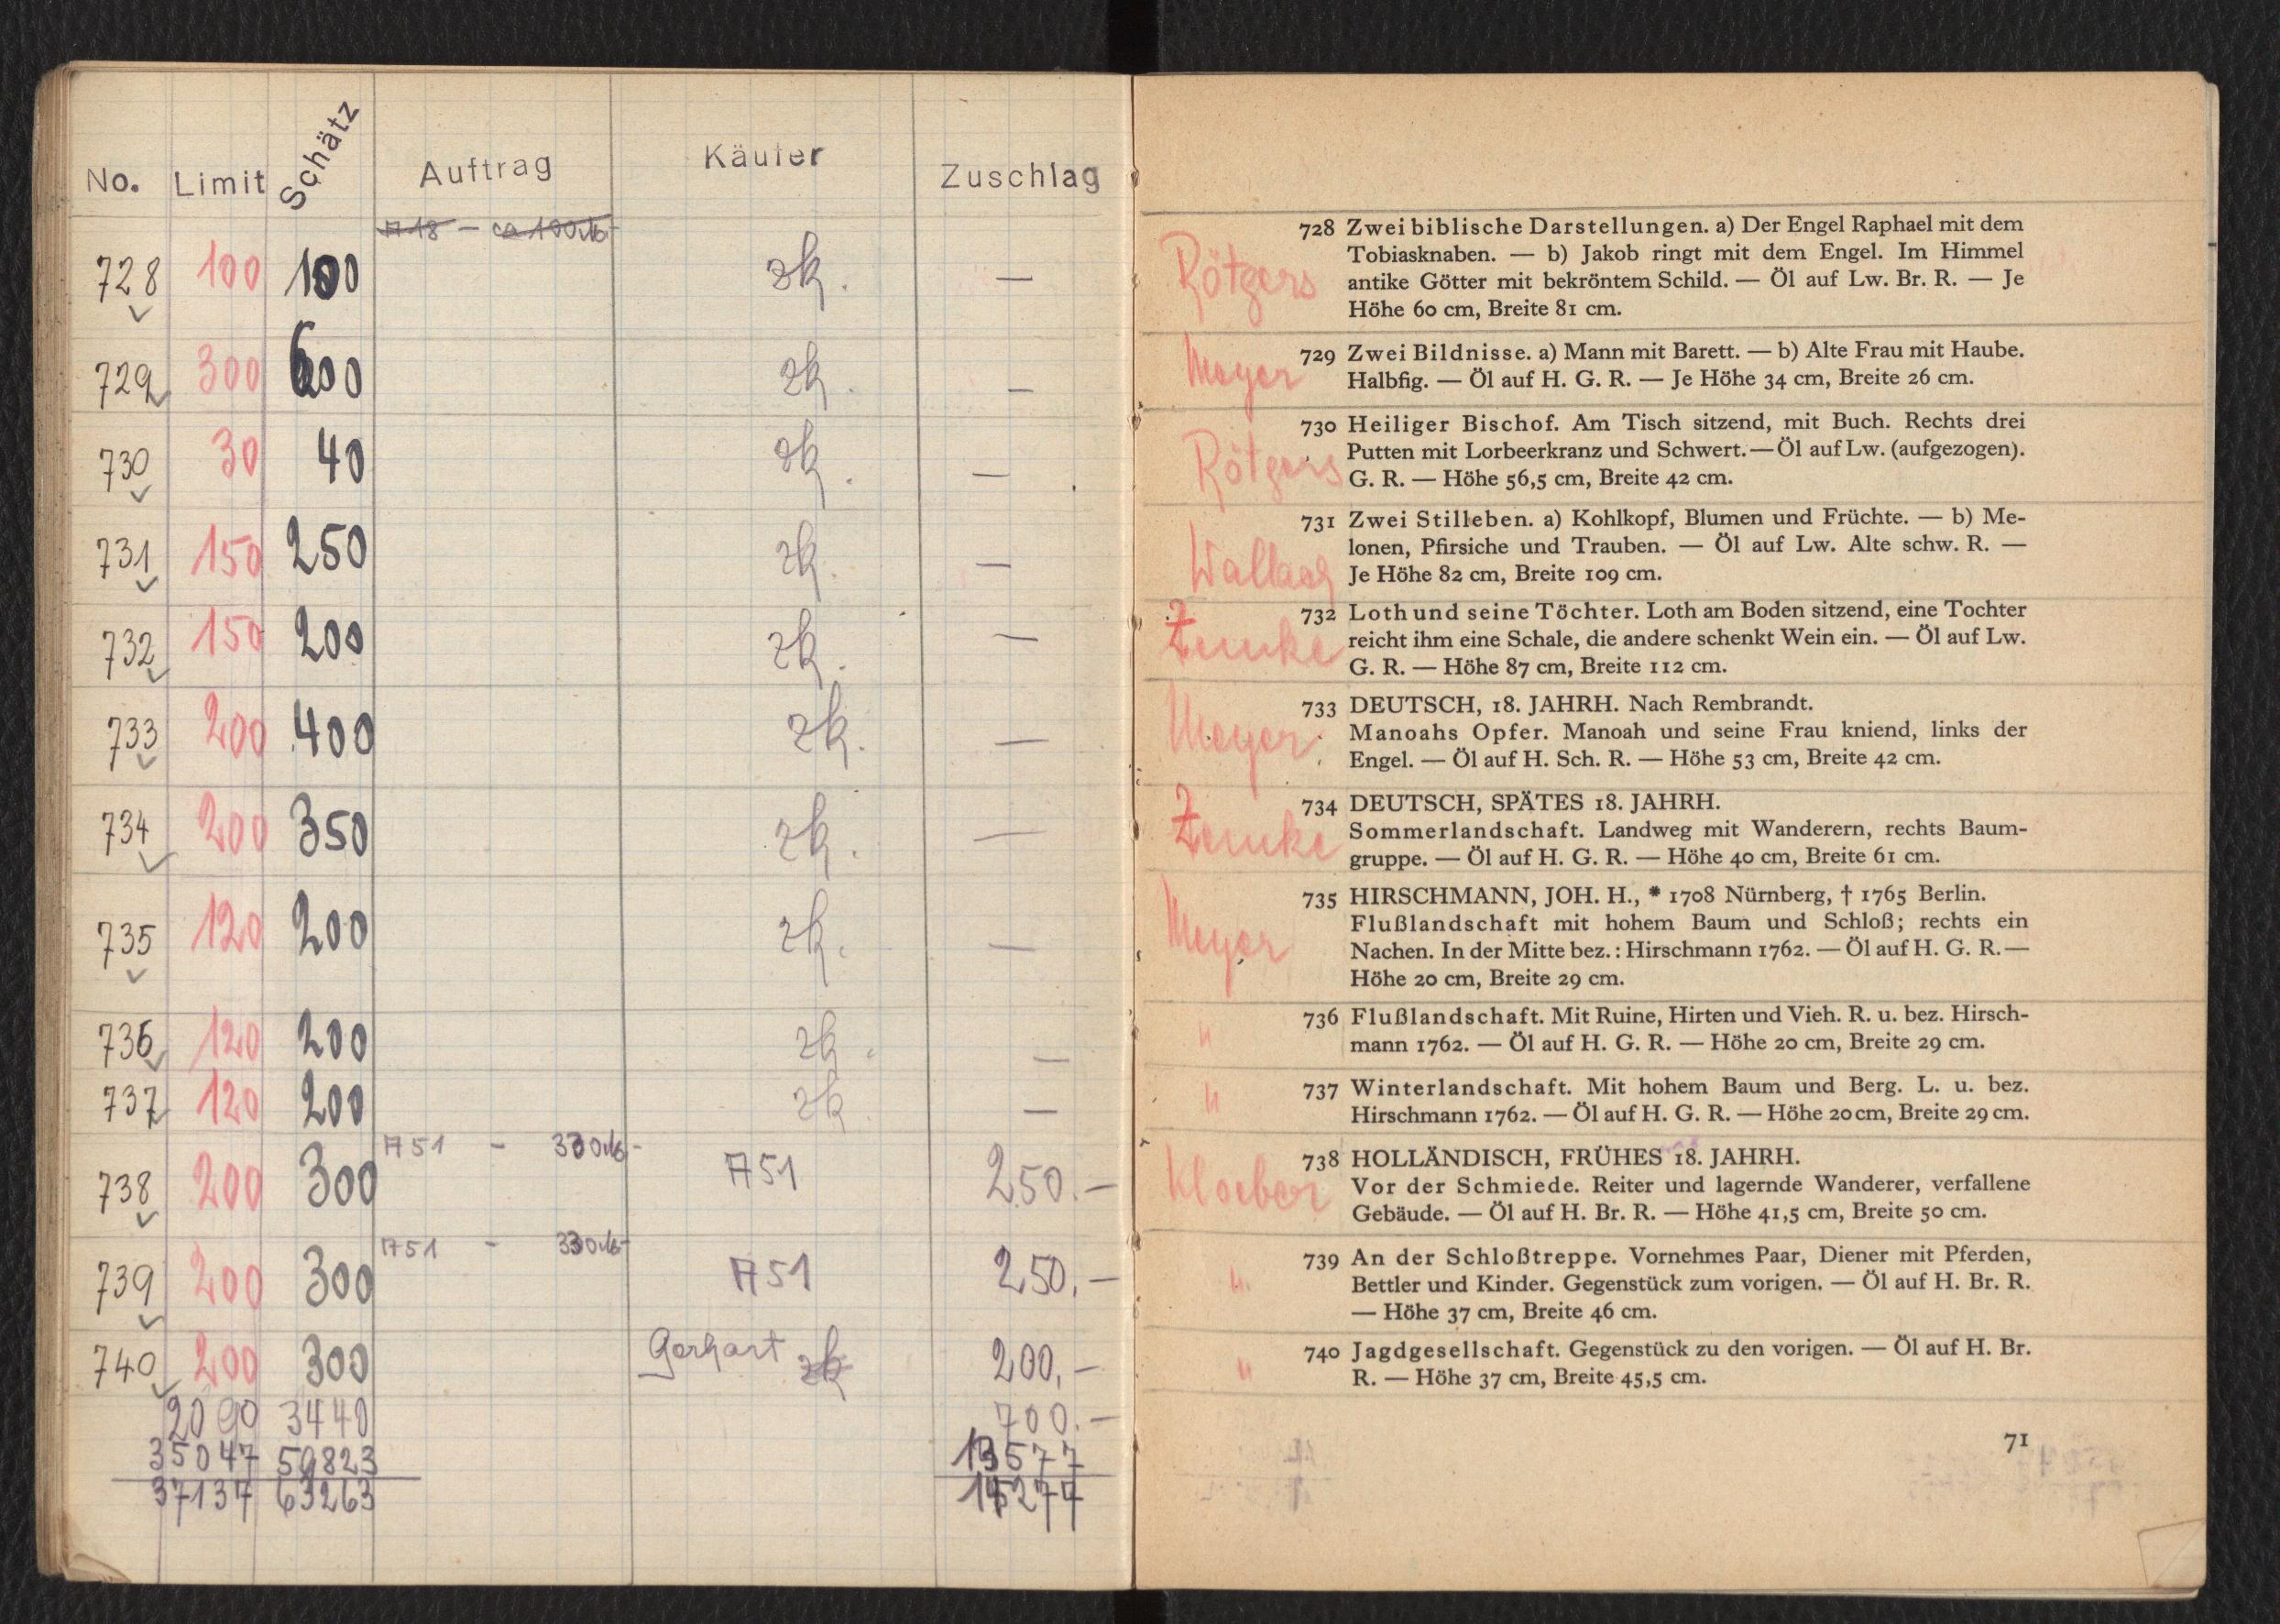 No. Limit Schätz Auftrag Käufer Zuschlag
A 18 — ca 100 M-
728 100 100 zk. —
729 300 600 zk. —
730 30 40 zk. —
731 150 250 zk. —
732 150 200 zk. —
733 200 400 zk. —
734 200 350 zk. —
735 120 200 zk. —
736 120 200 zk. —
737 120 200 zk. —
A 51 - 330 M-
738 200 300 A 51 250.—
A 51 - 330 M-
739 200 300 A 51 250.—
740 200 300 Gerhart zk 200,—
2090 3440 700.—
35047 59823 13577
37137 63263 14277
Rötgers
728 Zwei biblische Darstellungen. a) Der Engel Raphael mit dem
Tobiasknaben. — b) Jakob ringt mit dem Engel. Im Himmel
antike Götter mit bekröntem Schild. — Öl auf Lw. Br. R. — Je
Höhe 60 cm, Breite 81 cm.
Meyer
729 Zwei Bildnisse. a) Mann mit Barett. — b) Alte Frau mit Haube.
Halbfig. — Öl auf H. G. R. — Je Höhe 34 cm, Breite 26 cm.
Rötgers
730 Heiliger Bischof. Am Tisch sitzend, mit Buch. Rechts drei
Putten mit Lorbeerkranz und Schwert. — Öl auf Lw. (aufgezogen).
G. R. — Höhe 56,5 cm, Breite 42 cm.
Wallach
731 Zwei Stilleben. a) Kohlkopf, Blumen und Früchte. — b) Me-
lonen, Pfirsiche und Trauben. — Öl auf Lw. Alte schw. R. —
Je Höhe 82 cm, Breite 109 cm.
Zemke
732 Loth und seine Töchter. Loth am Boden sitzend, eine Tochter
reicht ihm eine Schale, die andere schenkt Wein ein. — Öl auf Lw.
G. R. — Höhe 87 cm, Breite 112 cm.
Meyer
733 DEUTSCH, 18. JAHRH. Nach Rembrandt.
Manoahs Opfer. Manoah und seine Frau kniend, links der
Engel. — Öl auf H. Sch. R. — Höhe 53 cm, Breite 42 cm.
Zemke
734 DEUTSCH, SPÄTES 18. JAHRH.
Sommerlandschaft. Landweg mit Wanderern, rechts Baum-
gruppe. — Öl auf H. G. R. — Höhe 40 cm, Breite 61 cm.
Meyer
735 HIRSCHMANN, JOH. H., * 1708 Nürnberg, † 1765 Berlin.
Flußlandschaft mit hohem Baum und Schloß; rechts ein
Nachen. In der Mitte bez.: Hirschmann 1762. — Öl auf H. G. R. —
Höhe 20 cm, Breite 29 cm.
"
736 Flußlandschaft. Mit Ruine, Hirten und Vieh. R. u. bez. Hirsch-
mann 1762. — Öl auf H. G. R. — Höhe 20 cm, Breite 29 cm.
"
737 Winterlandschaft. Mit hohem Baum und Berg. L. u. bez.
Hirschmann 1762. — Öl auf H. G. R. — Höhe 20 cm, Breite 29 cm.
Kloeber
738 HOLLÄNDISCH, FRÜHES 18. JAHRH.
Vor der Schmiede. Reiter und lagernde Wanderer, verfallene
Gebäude. — Öl auf H. Br. R. — Höhe 41,5 cm, Breite 50 cm.
"
739 An der Schloßtreppe. Vornehmes Paar, Diener mit Pferden,
Bettler und Kinder. Gegenstück zum vorigen. — Öl auf H. Br. R.
— Höhe 37 cm, Breite 46 cm.
"
740 Jagdgesellschaft. Gegenstück zu den vorigen. — Öl auf H. Br.
R. — Höhe 37 cm, Breite 45,5 cm.
71